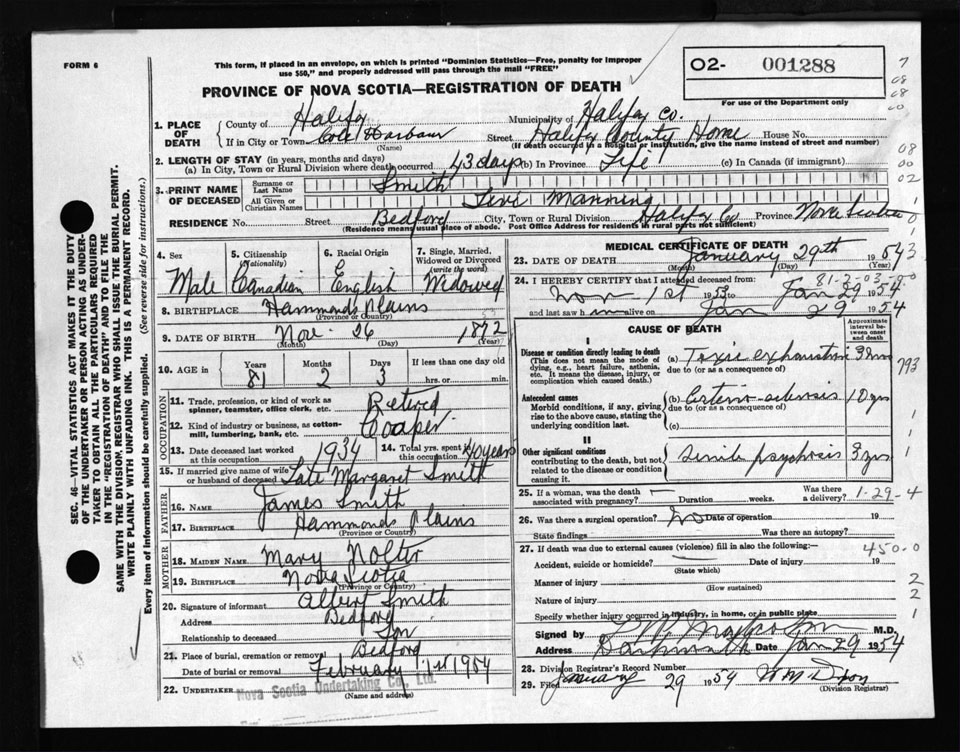 FORM 6
This form, if placed in an envelope, on which is printed "Dominion Statistics—Free, penalty for improper
use $50," and properly addressed will pass through the mail "FREE"
PROVINCE OF NOVA SCOTIA—REGISTRATION OF DEATH
O2- 001288
For use of the Department only
1. PLACE OF DEATH
County of Halifax Municipality of Halifax Co.
If in City or Town Cole Harbour Street Halifax County Home House No.
(Name) (If death occurred in a hospital or institution, give the name instead of street and number)
2. LENGTH OF STAY (in years, months and days)
(a) In City, Town or Rural Division where death occurred 43 days (b) In Province Life (c) In Canada (if immigrant)
3. PRINT NAME OF DECEASED
Surname or Last Name Smith
All Given or Christian Names Levi Manning
RESIDENCE No. Street Bedford City, Town or Rural Division Halifax Co Province Nova Scotia
(Residence means usual place of abode. Post Office Address for residents in rural parts not sufficient)
4. Sex Male
5. Citizenship (Nationality) Canadian
6. Racial Origin English
7. Single, Married, Widowed or Divorced (write the word) Widowed
8. BIRTHPLACE Hammonds Plains
(Province or Country)
9. DATE OF BIRTH Nov. 26 1872
(Month) (Day) (Year)
10. AGE in Years 81 Months 2 Days 3 If less than one day old hrs. or min.
OCCUPATION
11. Trade, profession, or kind of work as spinner, teamster, office clerk, etc. Retired
12. Kind of industry or business, as cotton-mill, lumbering, bank, etc. Cooper
13. Date deceased last worked at this occupation 1934 14. Total yrs. spent in this occupation 40 years
15. If married give name of wife or husband of deceased Late Margaret Smith
FATHER
16. NAME James Smith
17. BIRTHPLACE Hammonds Plains
(Province or Country)
MOTHER
18. MAIDEN NAME Mary Nolter
19. BIRTHPLACE Nova Scotia
(Province or Country)
20. Signature of informant Albert Smith
Address Bedford
Relationship to deceased Son
21. Place of burial, cremation or removal Bedford
Date of burial or removal February 1st 1954
22. UNDERTAKER Nova Scotia Undertaking Co., Ltd.
(Name and address)
MEDICAL CERTIFICATE OF DEATH
23. DATE OF DEATH January 29th 1954
(Month) (Day)
24. I HEREBY CERTIFY that I attended deceased from:
81-2-03-
Nov 1st 1953 to Jan 29 1954
and last saw him alive on Jan 29 1954
CAUSE OF DEATH
Approximate interval between onset and death
I
Disease or condition directly leading to death
(This does not mean the mode of dying, e.g., heart failure, asthenia, etc. It means the disease, injury, or complication which caused death.)
(a) Toxic exhaustion
due to (or as a consequence of)
Antecedent causes
Morbid conditions, if any, giving rise to the above cause, stating the underlying condition last.
(b) Arterio-sclerosis 10 yrs
due to (or as a consequence of)
(c)
II
Other significant conditions
contributing to the death, but not related to the disease or condition causing it.
Senile psychosis 3 yrs
25. If a woman, was the death associated with pregnancy? Duration weeks. Was there a delivery? 1-29-4
26. Was there a surgical operation? No Date of operation 19
State findings Was there an autopsy?
27. If death was due to external causes (violence) fill in also the following:—
450-0
Accident, suicide or homicide? Date of injury 19
(State which)
Manner of injury
(How sustained)
Nature of injury
Specify whether injury occurred in industry, in home, or in public place
Signed by M.D.
Address Dartmouth Date Jan 29 1954
28. Division Registrar's Record Number
29. Filed January 29 1954 W M Dixon
(Division Registrar)
793
SEC. 46—VITAL STATISTICS ACT MAKES IT THE DUTY
OF THE UNDERTAKER OR PERSON ACTING AS UNDER-
TAKER TO OBTAIN ALL THE PARTICULARS REQUIRED
IN THE "REGISTRATION OF DEATH" AND TO FILE THE
SAME WITH THE DIVISION REGISTRAR WHO SHALL ISSUE THE BURIAL PERMIT.
WRITE PLAINLY WITH UNFADING INK. THIS IS A PERMANENT RECORD.
Every item of information should be carefully supplied. (See reverse side for instructions.)